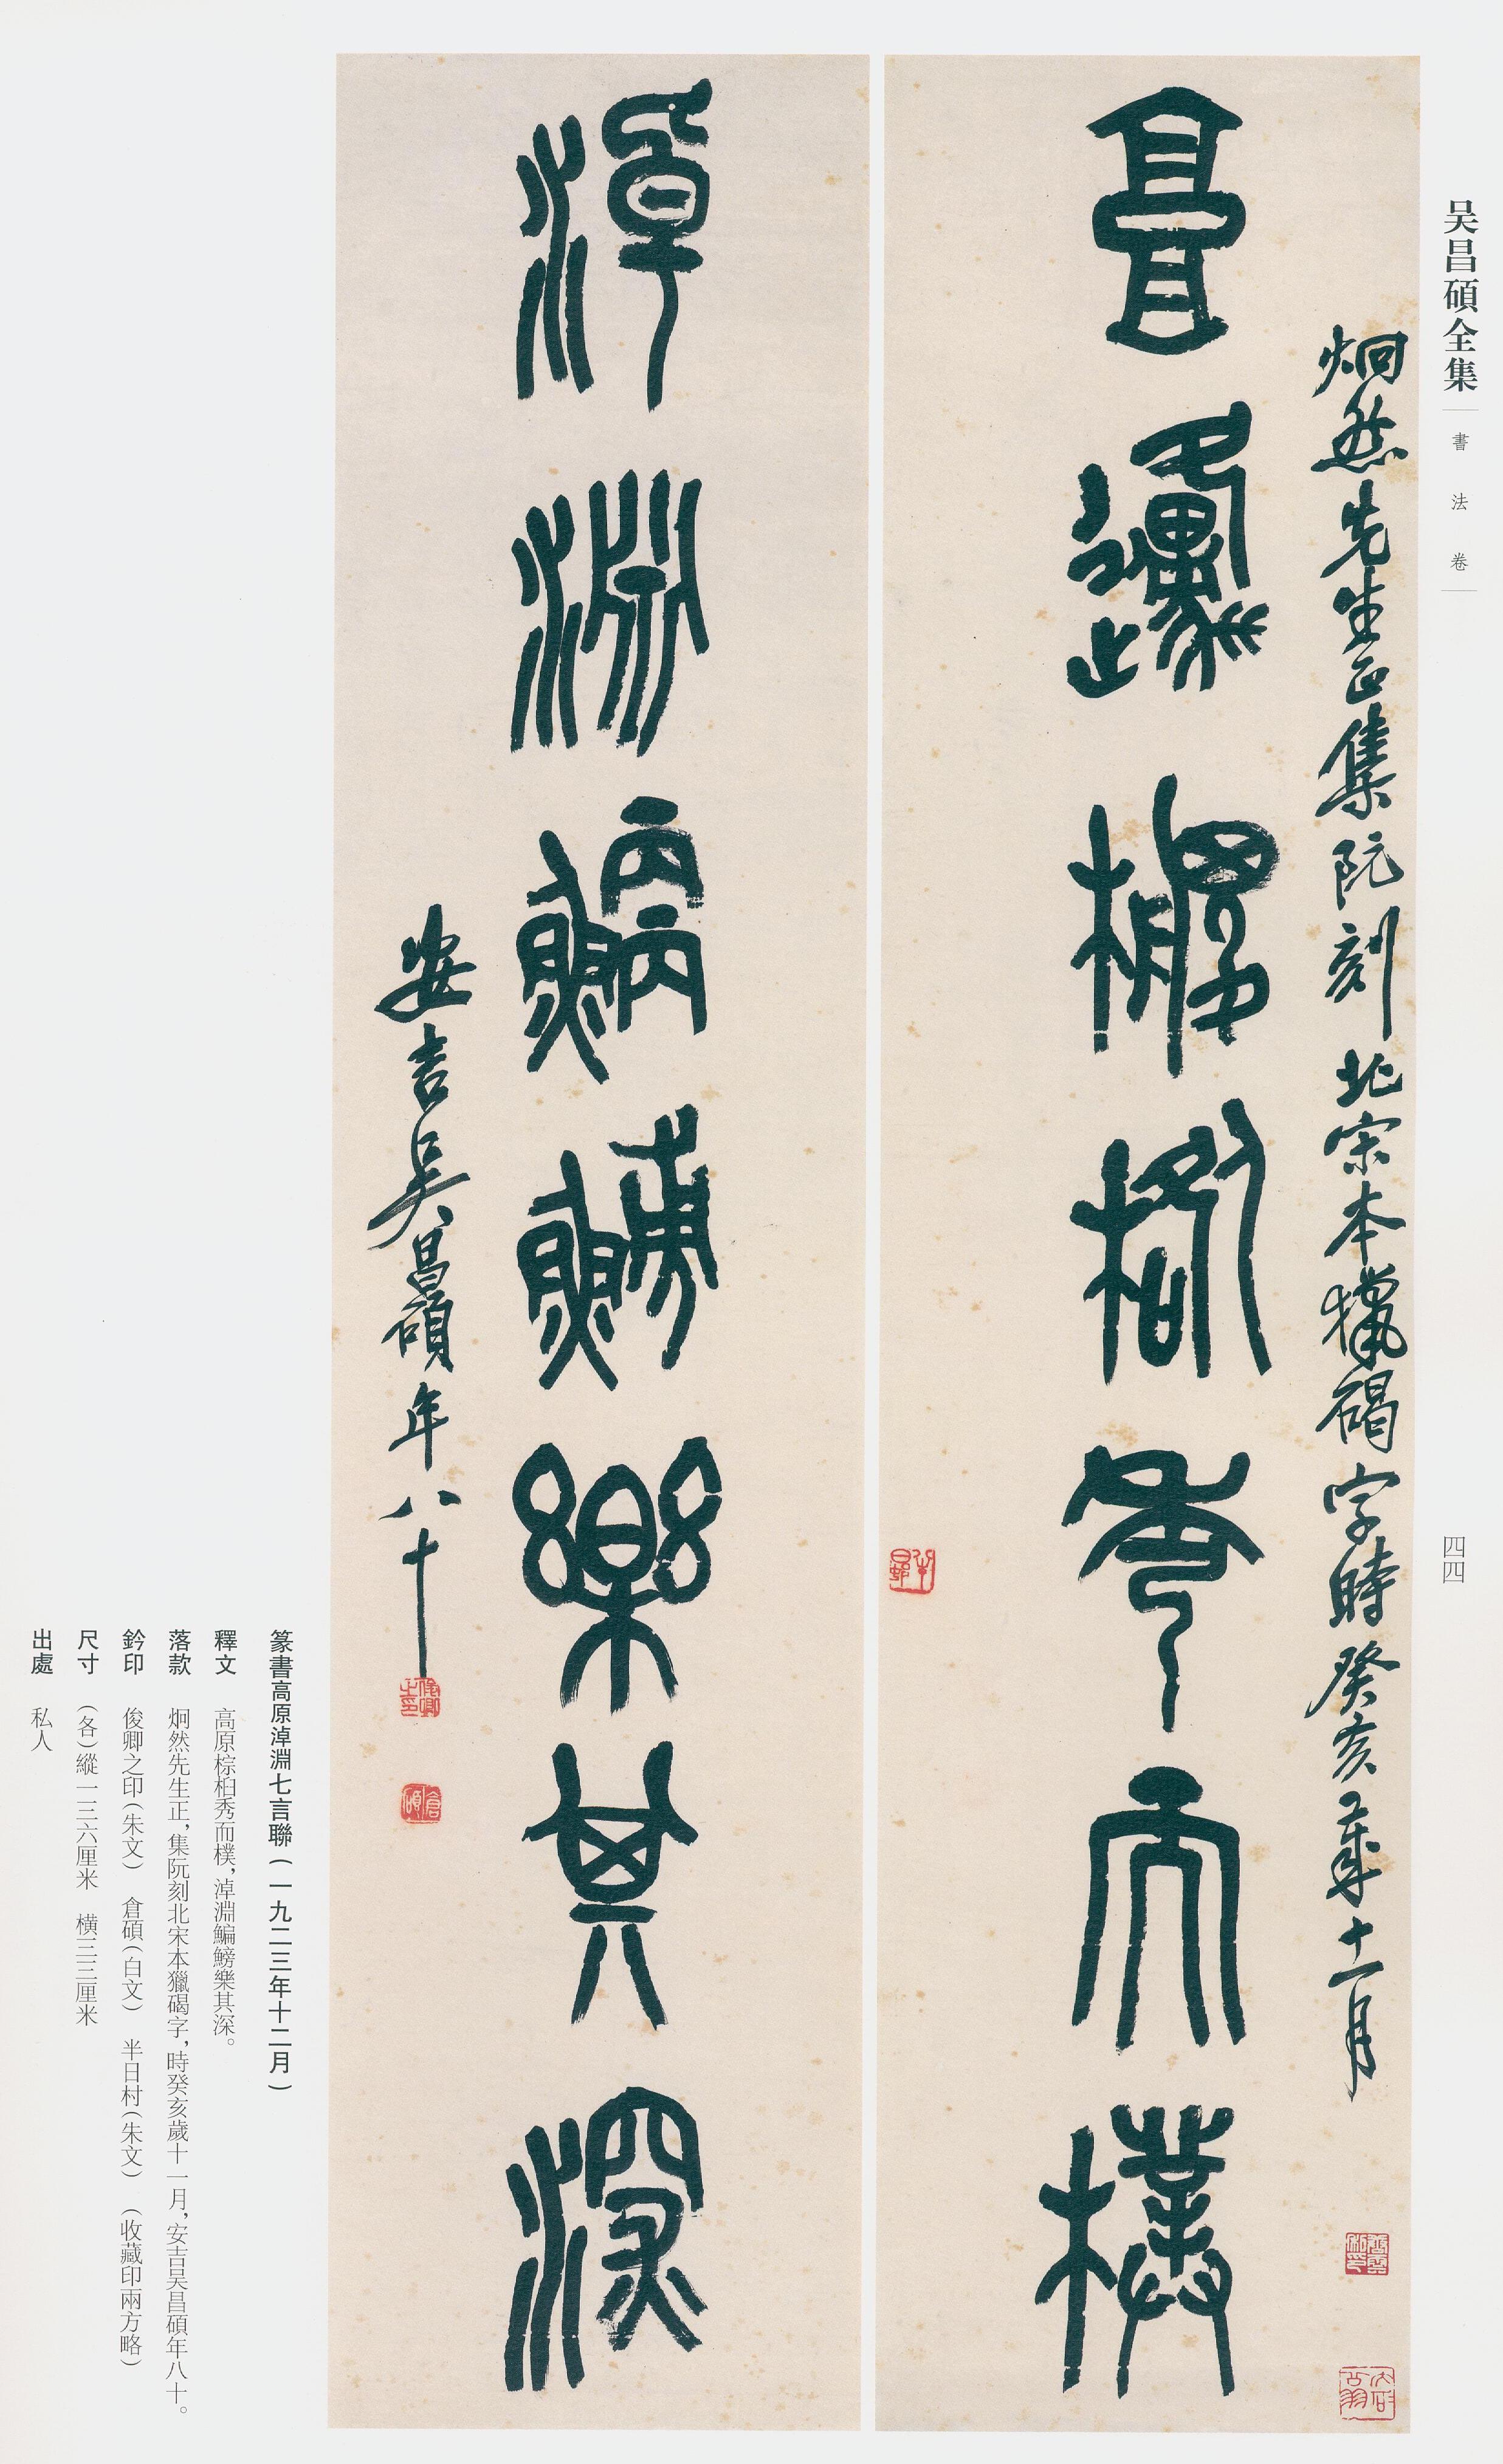 吴昌碩全集
書法卷
四四
炯然先生正集阮刻北宋本獵碣字時癸亥歲十一月
高邍椶𣐈秀而樸
淖淵鯾鱄樂其深
安吉吴昌碩年八十
俊卿之印
倉碩
半日邨
篆書高原淖淵七言聯(一九二三年十二月)
釋文 高原棕桕秀而樸,淖淵鯿鰟樂其深。
落款 炯然先生正,集阮刻北宋本獵碣字,時癸亥歲十一月,安吉吴昌碩年八十。
鈐印 俊卿之印(朱文) 倉碩(白文) 半日村(朱文) (收藏印兩方略)
尺寸 (各)縱一三六厘米 橫三三厘米
出處 私人